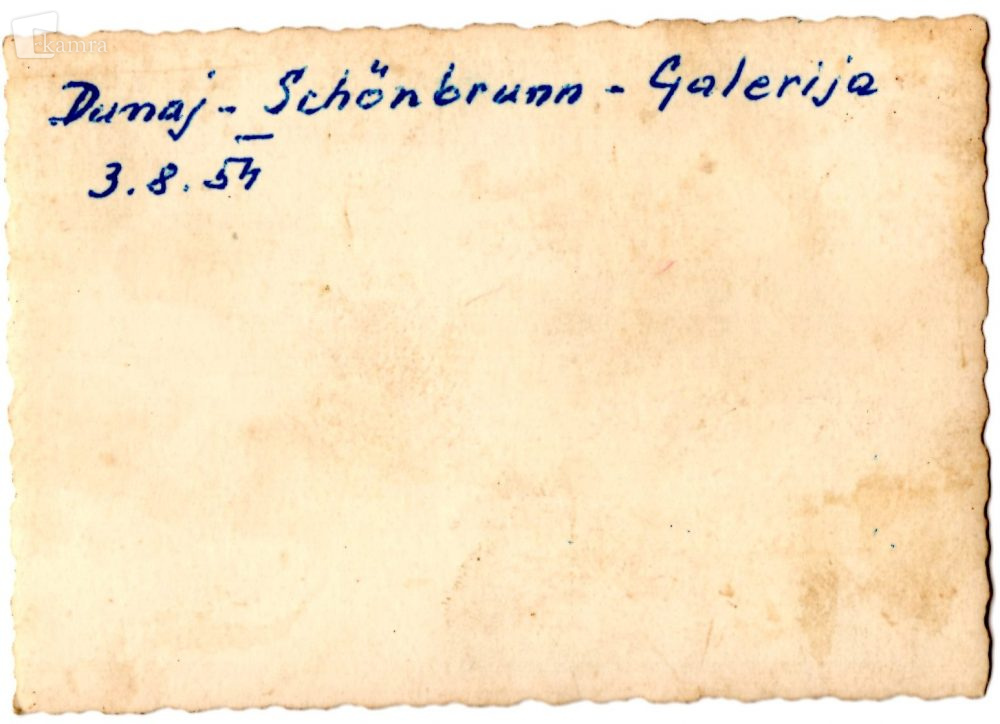 kamra
Dunaj - Schönbrunn - Galerija
3.8.54